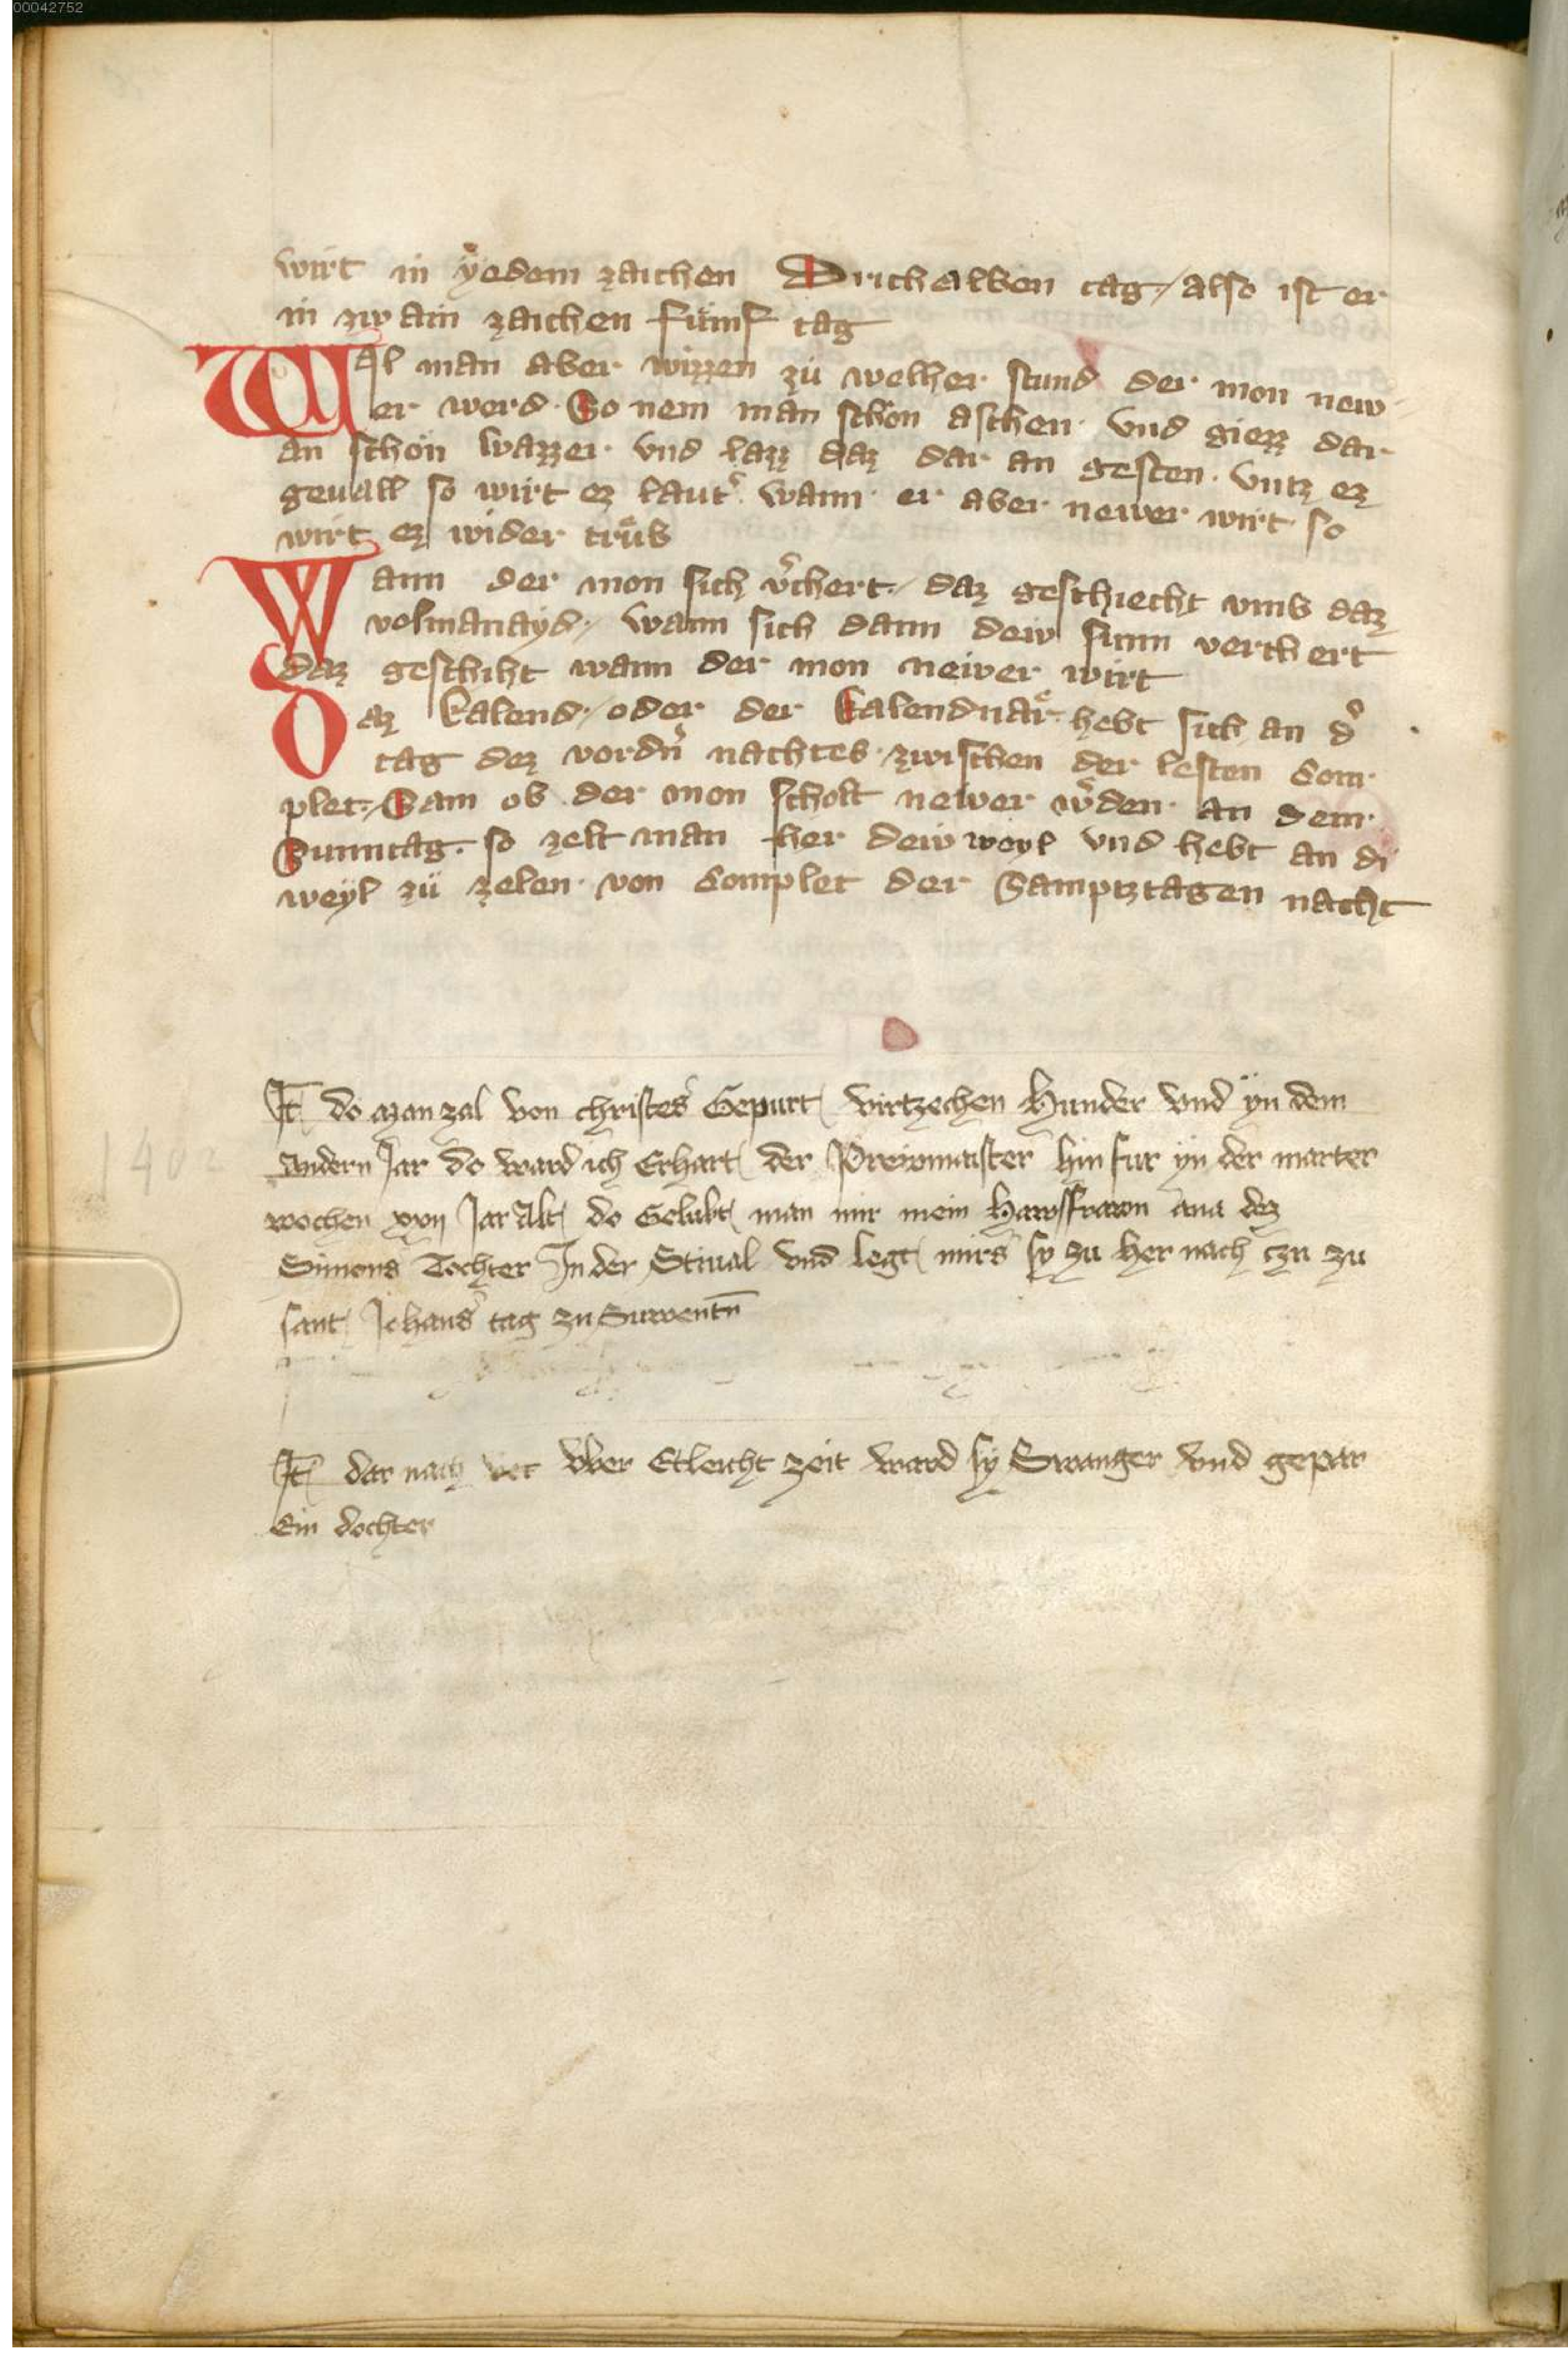 00042752
wirt in yedem zaichen Drithalben tag / also ist er
in zwain zaichen fümf tag
Wil man aber wizzen zü welher stund der mon new
er werd. So nem man schön aschen. vnd giezz dar
an schön wazzer. vnd lazz daz dar an gesten. vntz ez
geuall so wirt ez laut͛. wann er aber newer wirt so
wirt ez wider trüb
Wann der mon sich v͛chert / daz geschiecht vmb daz
volmanayd / wann sich dann dew sunn verchert
daz geschiht wann der mon newer wirt
Daz kalend / oder der kalendnaͤr hebt sich an d͛
tag dez vordn͛ nachtes. zwischen der lesten Com
plet. Sam ob der mon scholt newer w͛den. an dem
Sunntag. so zelt man her dew weyl vnd hebt an di
weyl zü zelen. von Complet der Samptztagen nacht
It do man zal von christes Gepurt virtzechen Hunder vnd yn dem
andern Jar do ward ich Erhart der Prewmaister hin fur yn der marter
1402
wochen xxvij Jar Alt do Gelubt man mir mein Hawsfrawn ana dez
Simons Tochter In der Stiual vnd legt mirs sy zu her nach czu zu
sant Johans tag zu Suwentn̄
It dar nach vber Etleicht zeit ward sy Swanger vnd gepar
Ein dochter